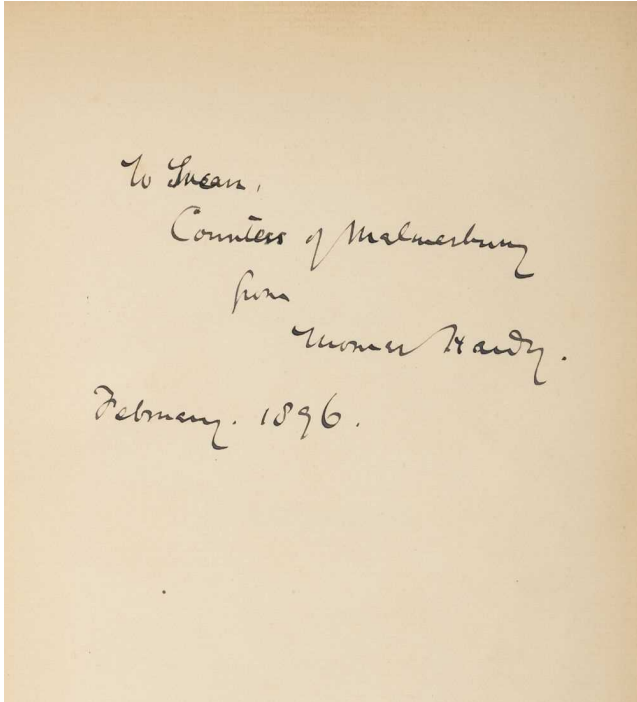 To Susan,
Countess of Malmesbury
from
Thomas Hardy.
February. 1896.